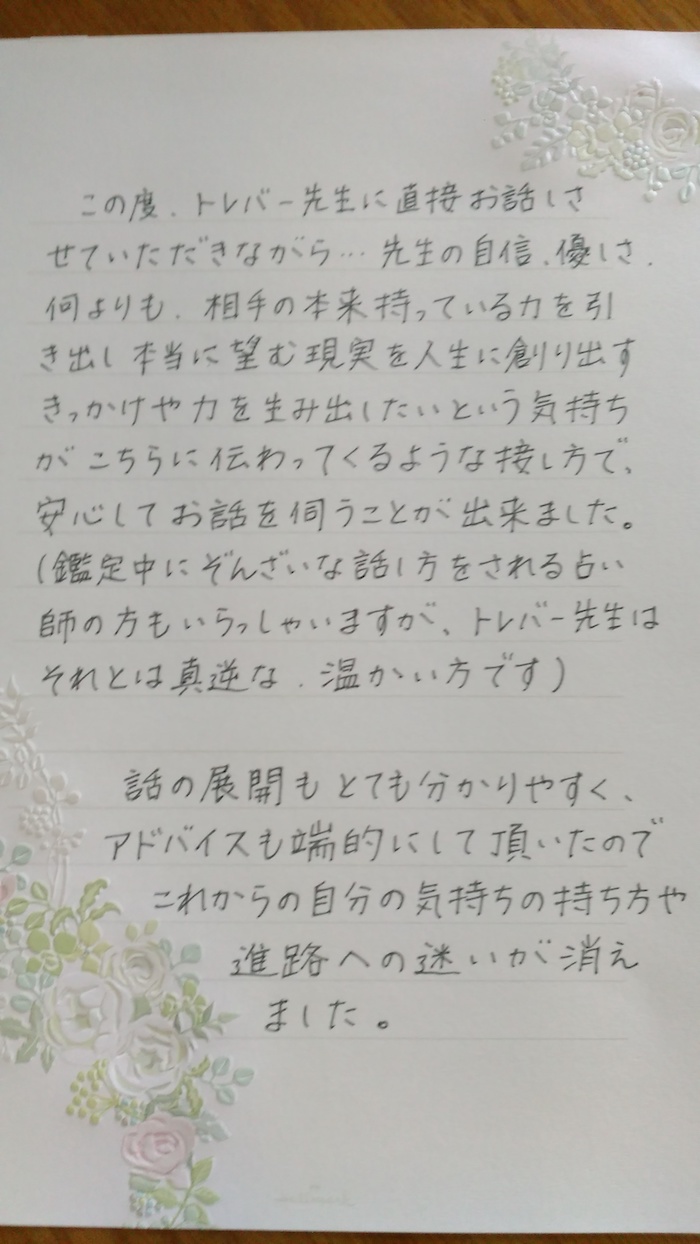 この度、トレバー先生に直接お話しさ
せていただきながら…先生の自信、優しさ、
何よりも、相手の本来持っている力を引
き出し本当に望む現実を人生に創り出す
きっかけや力を生み出したいという気持ち
がこちらに伝わってくるような接し方で、
安心してお話を伺うことが出来ました。
(鑑定中にぞんざいな話し方をされる占い
師の方もいらっしゃいますが、トレバー先生は
それとは真逆な、温かい方です)
話の展開もとても分かりやすく、
アドバイスも端的にして頂いたので
これからの自分の気持ちの持ち方や
進路への迷いが消え
ました。